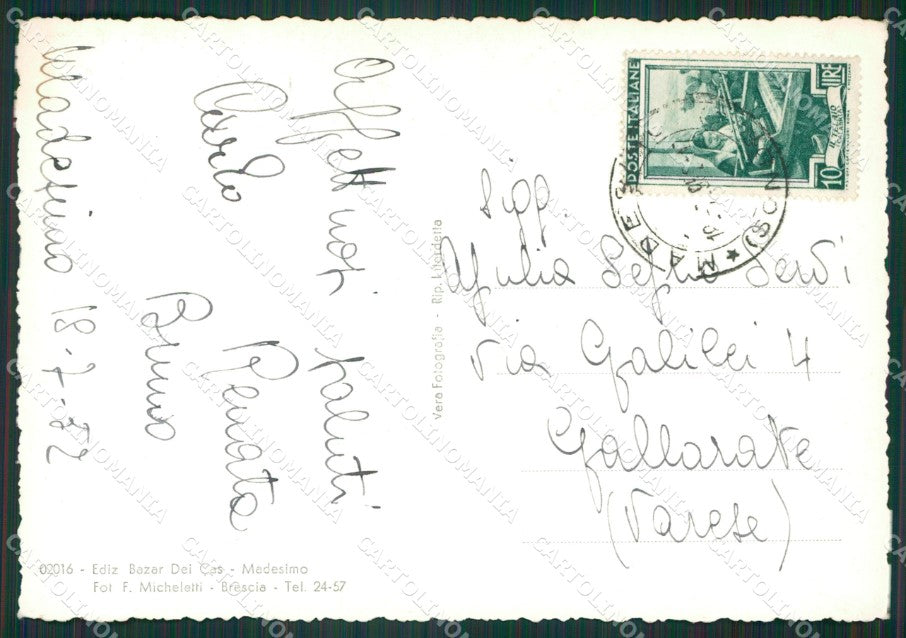 Madesimo 18-7-52
Affettuosi saluti
Carlo Renata
Bruno
Sigg.
Giulia Seglio Servi
Via Galilei 4
Gallarate
(Varese)
POSTE ITALIANE
LIRE
10
MADES
(SON
Vera Fotografia - Rip. Interdetta
02016 - Ediz Bazar Dei Cas - Madesimo
Fot F. Micheletti - Brescia - Tel. 24-57
CARTOLINOMANIA